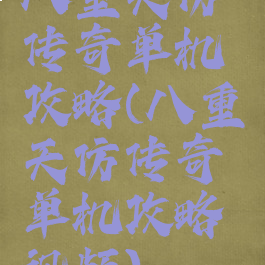 八重天仿
传奇单机
攻略(八重
天仿传奇
单机攻略
视频)